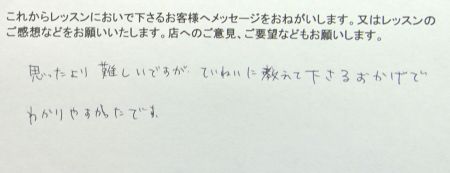 これからレッスンにおいで下さるお客様へメッセージをおねがいします。又はレッスンの
ご感想などをお願いいたします。店へのご意見、ご要望などもお願いします。
思ったより 難しいですが ていねいに 教えて下さるおかげで
わかりやすかったです